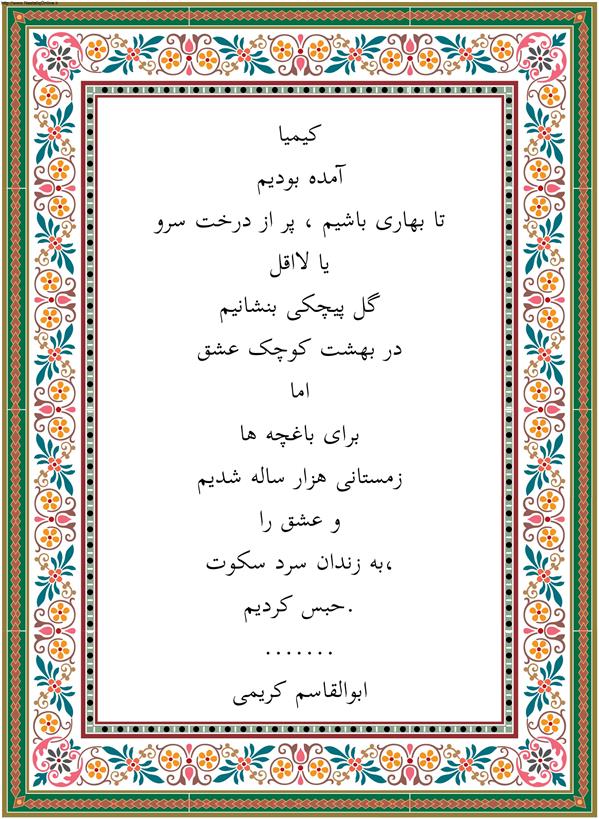 http://www.NastaliqOnline.ir
کیمیا
آمده بودیم
تا بهاری باشیم ، پر از درخت سرو
یا لااقل
گل پیچکی بنشانیم
در بهشت کوچک عشق
اما
برای باغچه ها
زمستانی هزار ساله شدیم
و عشق را
به زندان سرد سکوت،
حبس کردیم.
.......
ابوالقاسم کریمی